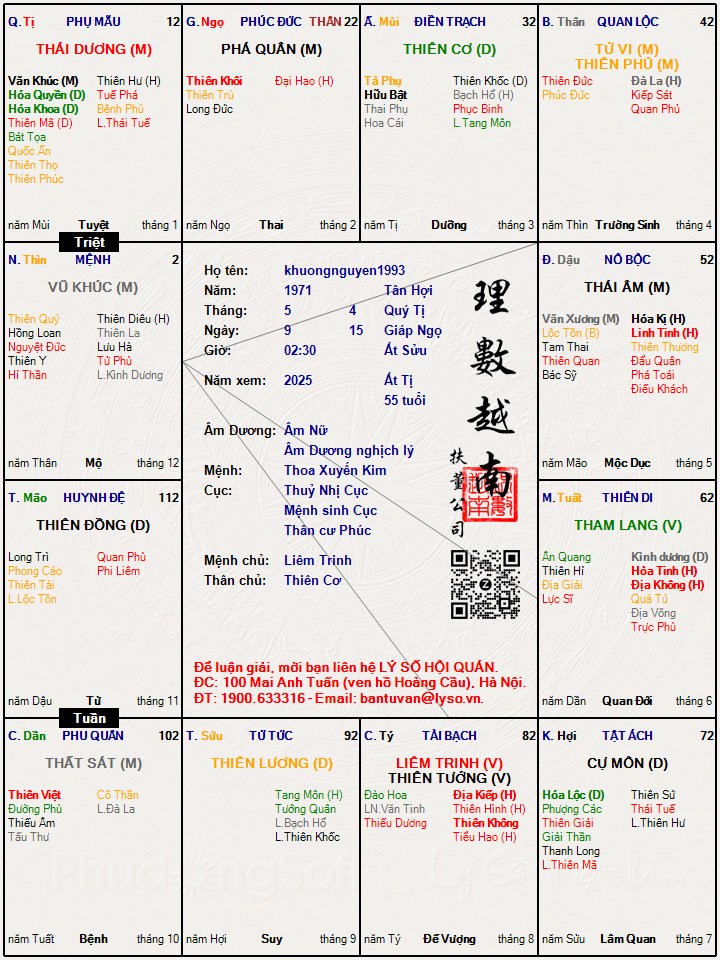 Q. Tị PHỤ MẪU 12
THÁI DƯƠNG (M)
Văn Khúc (M) Thiên Hư (H)
Hóa Quyền (D) Tuế Phá
Hóa Khoa (D) Bệnh Phù
Thiên Mã (D) L.Thái Tuế
Bát Tọa
Quốc Ấn
Thiên Thọ
Thiên Phúc
năm Mùi Tuyệt tháng 1
G. Ngọ PHÚC ĐỨC THÂN 22
PHÁ QUÂN (M)
Thiên Khôi Đại Hao (H)
Thiên Trù
Long Đức
năm Ngọ Thai tháng 2
Ấ. Mùi ĐIỀN TRẠCH 32
THIÊN CƠ (D)
Tả Phụ Thiên Khốc (D)
Hữu Bật Bạch Hổ (H)
Thai Phụ Phục Binh
Hoa Cái L.Tang Môn
năm Tị Dưỡng tháng 3
B. Thân QUAN LỘC 42
TỬ VI (M)
THIÊN PHỦ (M)
Thiên Đức Đà La (H)
Phúc Đức Kiếp Sát
Quan Phủ
năm Thìn Trường Sinh tháng 4
Triệt
N. Thìn MỆNH 2
VŨ KHÚC (M)
Thiên Quý Thiên Diêu (H)
Hồng Loan Thiên La
Nguyệt Đức Lưu Hà
Thiên Y Tử Phù
Hỉ Thần L.Kình Dương
năm Thân Mộ tháng 12
Họ tên: khuongnguyen1993
Năm: 1971 Tân Hợi
Tháng: 5 4 Quý Tị
Ngày: 9 15 Giáp Ngọ
Giờ: 02:30 Ất Sửu
Năm xem: 2025 Ất Tị
55 tuổi
Âm Dương: Âm Nữ
Âm Dương nghịch lý
Mệnh: Thoa Xuyến Kim
Cục: Thuỷ Nhị Cục
Mệnh sinh Cục
Thân cư Phúc
Mệnh chủ: Liêm Trinh
Thân chủ: Thiên Cơ
理數越南
扶董公司
Để luận giải, mời bạn liên hệ LÝ SỐ HỘI QUÁN.
ĐC: 100 Mai Anh Tuấn (ven hồ Hoàng Cầu), Hà Nội.
ĐT: 1900.633316 - Email: bantuvan@lyso.vn.
Đ. Dậu NÔ BỘC 52
THÁI ÂM (M)
Văn Xương (M) Hóa Kị (H)
Lộc Tồn (B) Linh Tinh (H)
Tam Thai Thiên Thương
Thiên Quan Đẩu Quân
Bác Sỹ Phá Toái
Điếu Khách
năm Mão Mộc Dục tháng 5
T. Mão HUYNH ĐỆ 112
THIÊN ĐỒNG (D)
Long Trì Quan Phù
Phong Cáo Phi Liêm
Thiên Tài
L.Lộc Tồn
năm Dậu Tử tháng 11
M. Tuất THIÊN DI 62
THAM LANG (V)
Ân Quang Kình dương (D)
Thiên Hỉ Hỏa Tinh (H)
Địa Giải Địa Không (H)
Lực Sĩ Quả Tú
Địa Võng
Trực Phù
năm Dần Quan Đới tháng 6
Tuần
C. Dần PHU QUÂN 102
THẤT SÁT (M)
Thiên Việt Cô Thần
Đường Phù L.Đà La
Thiếu Âm
Tấu Thư
năm Tuất Bệnh tháng 10
T. Sửu TỬ TỨC 92
THIÊN LƯƠNG (D)
Tang Môn (H)
Tướng Quân
L.Bạch Hổ
L.Thiên Khốc
năm Hợi Suy tháng 9
C. Tý TÀI BẠCH 82
LIÊM TRINH (V)
THIÊN TƯỚNG (V)
Đào Hoa Địa Kiếp (H)
LN.Văn Tinh Thiên Hình (H)
Thiếu Dương Thiên Không
Tiểu Hao (H)
năm Tý Đế Vượng tháng 8
K. Hợi TẬT ÁCH 72
CỰ MÔN (D)
Hóa Lộc (D) Thiên Sứ
Phượng Các Thái Tuế
Thiên Giải L.Thiên Hư
Giải Thần
Thanh Long
L.Thiên Mã
năm Sửu Lâm Quan tháng 7